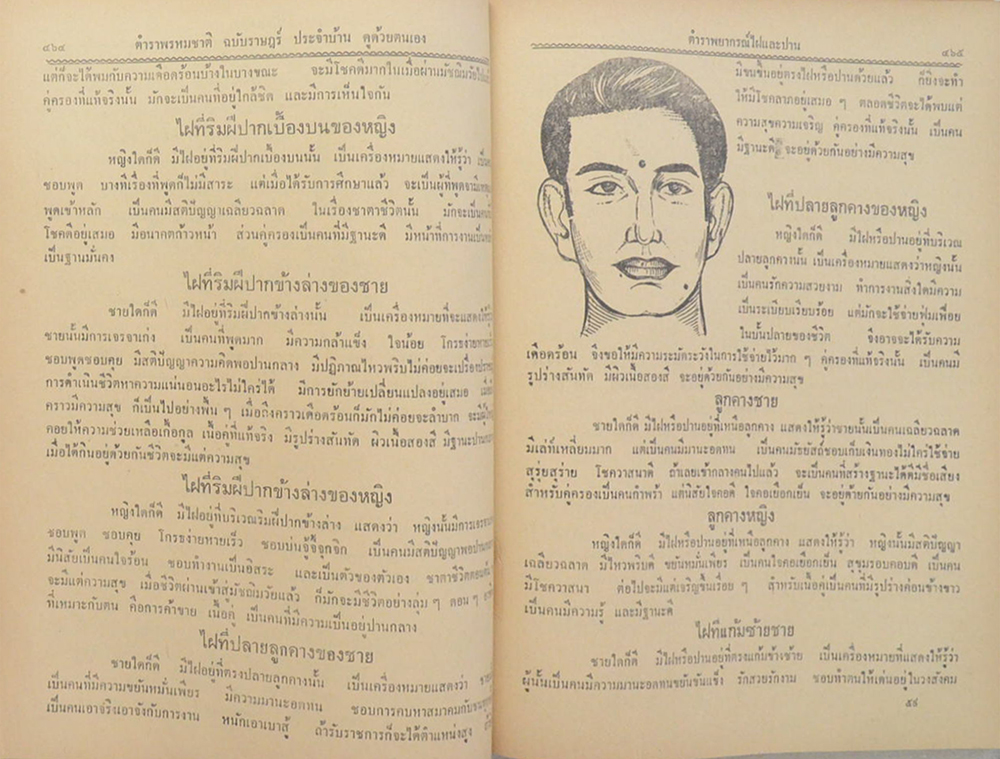 ๔๖๔
ตำราพรหมชาติ ฉบับราษฎร์ ประจำบ้าน ดูด้วยตนเอง
แต่ก็จะได้พบกับความเดือดร้อนบ้างในบางขณะ จะมีโชคดีมากในเมื่อผ่านมัชฌิมวัย
คู่ครองที่แท้จริงนั้น มักจะเป็นคนที่อยู่ใกล้ชิด และมีการเห็นใจกัน
ไฝที่ริมฝีปากเบื้องบนของหญิง
หญิงใดก็ดี มีไฝอยู่ที่ริมฝีปากเบื้องบนนั้น เป็นเครื่องหมายแสดงให้รู้ว่า
ชอบพูด บางทีเรื่องที่พูดก็ไม่มีสาระ แต่เมื่อได้รับการศึกษาแล้ว จะเป็นผู้ที่พูดจา
พูดเข้าหลัก เป็นคนมีสติปัญญาเฉลียวฉลาด ในเรื่องชาตาชีวิตนั้น มักจะเป็น
โชคดีอยู่เสมอ มีอนาคตก้าวหน้า ส่วนคู่ครองเป็นคนที่มีฐานะดี มีหน้าที่การงาน
เป็นฐานมั่นคง
ไฝที่ริมฝีปากข้างล่างของชาย
ชายใดก็ดี มีไฝอยู่ที่ริมฝีปากข้างล่างนั้น เป็นเครื่องหมายที่จะแสดง
ชายนั้นมีการเจรจาเก่ง เป็นคนที่พูดมาก มีความกล้าแข็ง ใจน้อย โกรธง่าย
ชอบพูดชอบคุย มีสติปัญญาความคิดพอปานกลาง มีปฏิภาณไหวพริบไม่ค่อยจะ
การดำเนินชีวิตหาความแน่นอนอะไรไม่ใคร่ได้ มีการยักย้ายเปลี่ยนแปลงอยู่เสมอ
คราวมีความสุข ก็เป็นไปอย่างพื้น ๆ เมื่อถึงคราวเดือดร้อนก็มักไม่ค่อยจะลำบาก จะมี
คอยให้ความช่วยเหลือเกื้อกูล เนื้อคู่ที่แท้จริง มีรูปร่างสันทัด ผิวเนื้อสองสี มีฐานะ
เมื่อได้กินอยู่ด้วยกันชีวิตจะมีแต่ความสุข
ไฝที่ริมฝีปากข้างล่างของหญิง
หญิงใดก็ดี มีไฝอยู่ที่บริเวณริมฝีปากข้างล่าง แสดงว่า หญิงนั้นมีการ
ชอบพูด ชอบคุย โกรธง่ายหายเร็ว ชอบบ่นจู้จี้จุกจิก เป็นคนมีสติปัญญา
มีนิสัยเป็นคนใจร้อน ชอบทำงานเป็นอิสระ และเป็นตัวของตัวเอง ชาตาชีวิต
จะมีแต่ความสุข เมื่อชีวิตผ่านเข้าสู่มัชฌิมวัยแล้ว ก็มักจะมีชีวิตอย่างลุ่ม ๆ ดอน ๆ
ที่เหมาะกับตน คือการค้าขาย เนื้อคู่ เป็นคนที่มีความเป็นอยู่ปานกลาง
ไฝที่ปลายลูกคางของชาย
ชายใดก็ดี มีไฝอยู่ที่ตรงปลายลูกคางนั้น เป็นเครื่องหมายแสดงว่า
เป็นคนที่มีความขยันหมั่นเพียร มีความมานะอดทน ชอบการคบหาสมาคมกับ
เป็นคนเอาจริงเอาจังกับการงาน หนักเอาเบาสู้ ถ้ารับราชการก็จะได้ตำแหน่งสูง
ตำราพยากรณ์ไฝและปาน
๔๖๕
มีขนขึ้นอยู่ตรงไฝหรือปานด้วยแล้ว ก็ยิ่งจะทำ
ให้มีโชคลาภอยู่เสมอ ๆ ตลอดชีวิตจะได้พบแต่
ความสุขความเจริญ คู่ครองที่แท้จริงนั้น เป็นคน
มีฐานะดี จะอยู่ด้วยกันอย่างมีความสุข
ไฝที่ปลายลูกคางของหญิง
หญิงใดก็ดี มีไฝหรือปานอยู่ที่บริเวณ
ปลายลูกคางนั้น เป็นเครื่องหมายแสดงว่าหญิงนั้น
เป็นคนรักความสวยงาม ทำการงานสิ่งใดมีความ
เป็นระเบียบเรียบร้อย แต่มักจะใช้จ่ายฟุ่มเฟือย
ในบั้นปลายของชีวิต จึงอาจจะได้รับความ
เดือดร้อน จึงขอให้มีความระมัดระวังในการใช้จ่ายไว้มาก ๆ คู่ครองที่แท้จริงนั้น เป็นคนมี
รูปร่างสันทัด มีผิวเนื้อสองสี จะอยู่ด้วยกันอย่างมีความสุข
ลูกคางชาย
ชายใดก็ดี มีไฝหรือปานอยู่ที่เหนือลูกคาง แสดงให้รู้ว่าชายนั้นเป็นคนเฉลียวฉลาด
มีเล่ห์เหลี่ยมมาก แต่เป็นคนมีมานะอดทน เป็นคนมัธยัสถ์ชอบเก็บเงินทองไม่ใคร่ใช้จ่าย
สุรุ่ยสุร่าย โชควาสนาดี ถ้าเลยเข้ากลางคนไปแล้ว จะเป็นคนที่สร้างฐานะได้ดีมีชื่อเสียง
สำหรับคู่ครองเป็นคนกำพร้า แต่นิสัยใจคอดี ใจคอเยือกเย็น จะอยู่ด้วยกันอย่างมีความสุข
ลูกคางหญิง
หญิงใดก็ดี มีไฝหรือปานอยู่ที่เหนือลูกคาง แสดงให้รู้ว่า หญิงนั้นมีสติปัญญา
เฉลียวฉลาด มีไหวพริบดี ขยันหมั่นเพียร เป็นคนใจคอเยือกเย็น สุขุมรอบคอบดี เป็นคน
มีโชควาสนา ต่อไปจะมีแต่เจริญขึ้นเรื่อย ๆ สำหรับเนื้อคู่เป็นคนที่มีรูปร่างค่อนข้างขาว
เป็นคนมีความรู้ และมีฐานะดี
ไฝที่แก้มซ้ายชาย
ชายใดก็ดี มีไฝหรือปานอยู่ที่ตรงแก้มข้างซ้าย เป็นเครื่องหมายที่แสดงให้รู้ว่า
ผู้นั้นเป็นคนมีความมานะอดทนขยันขันแข็ง รักสวยรักงาม ชอบทำตนให้เด่นอยู่ในวงสังคม
๕๙